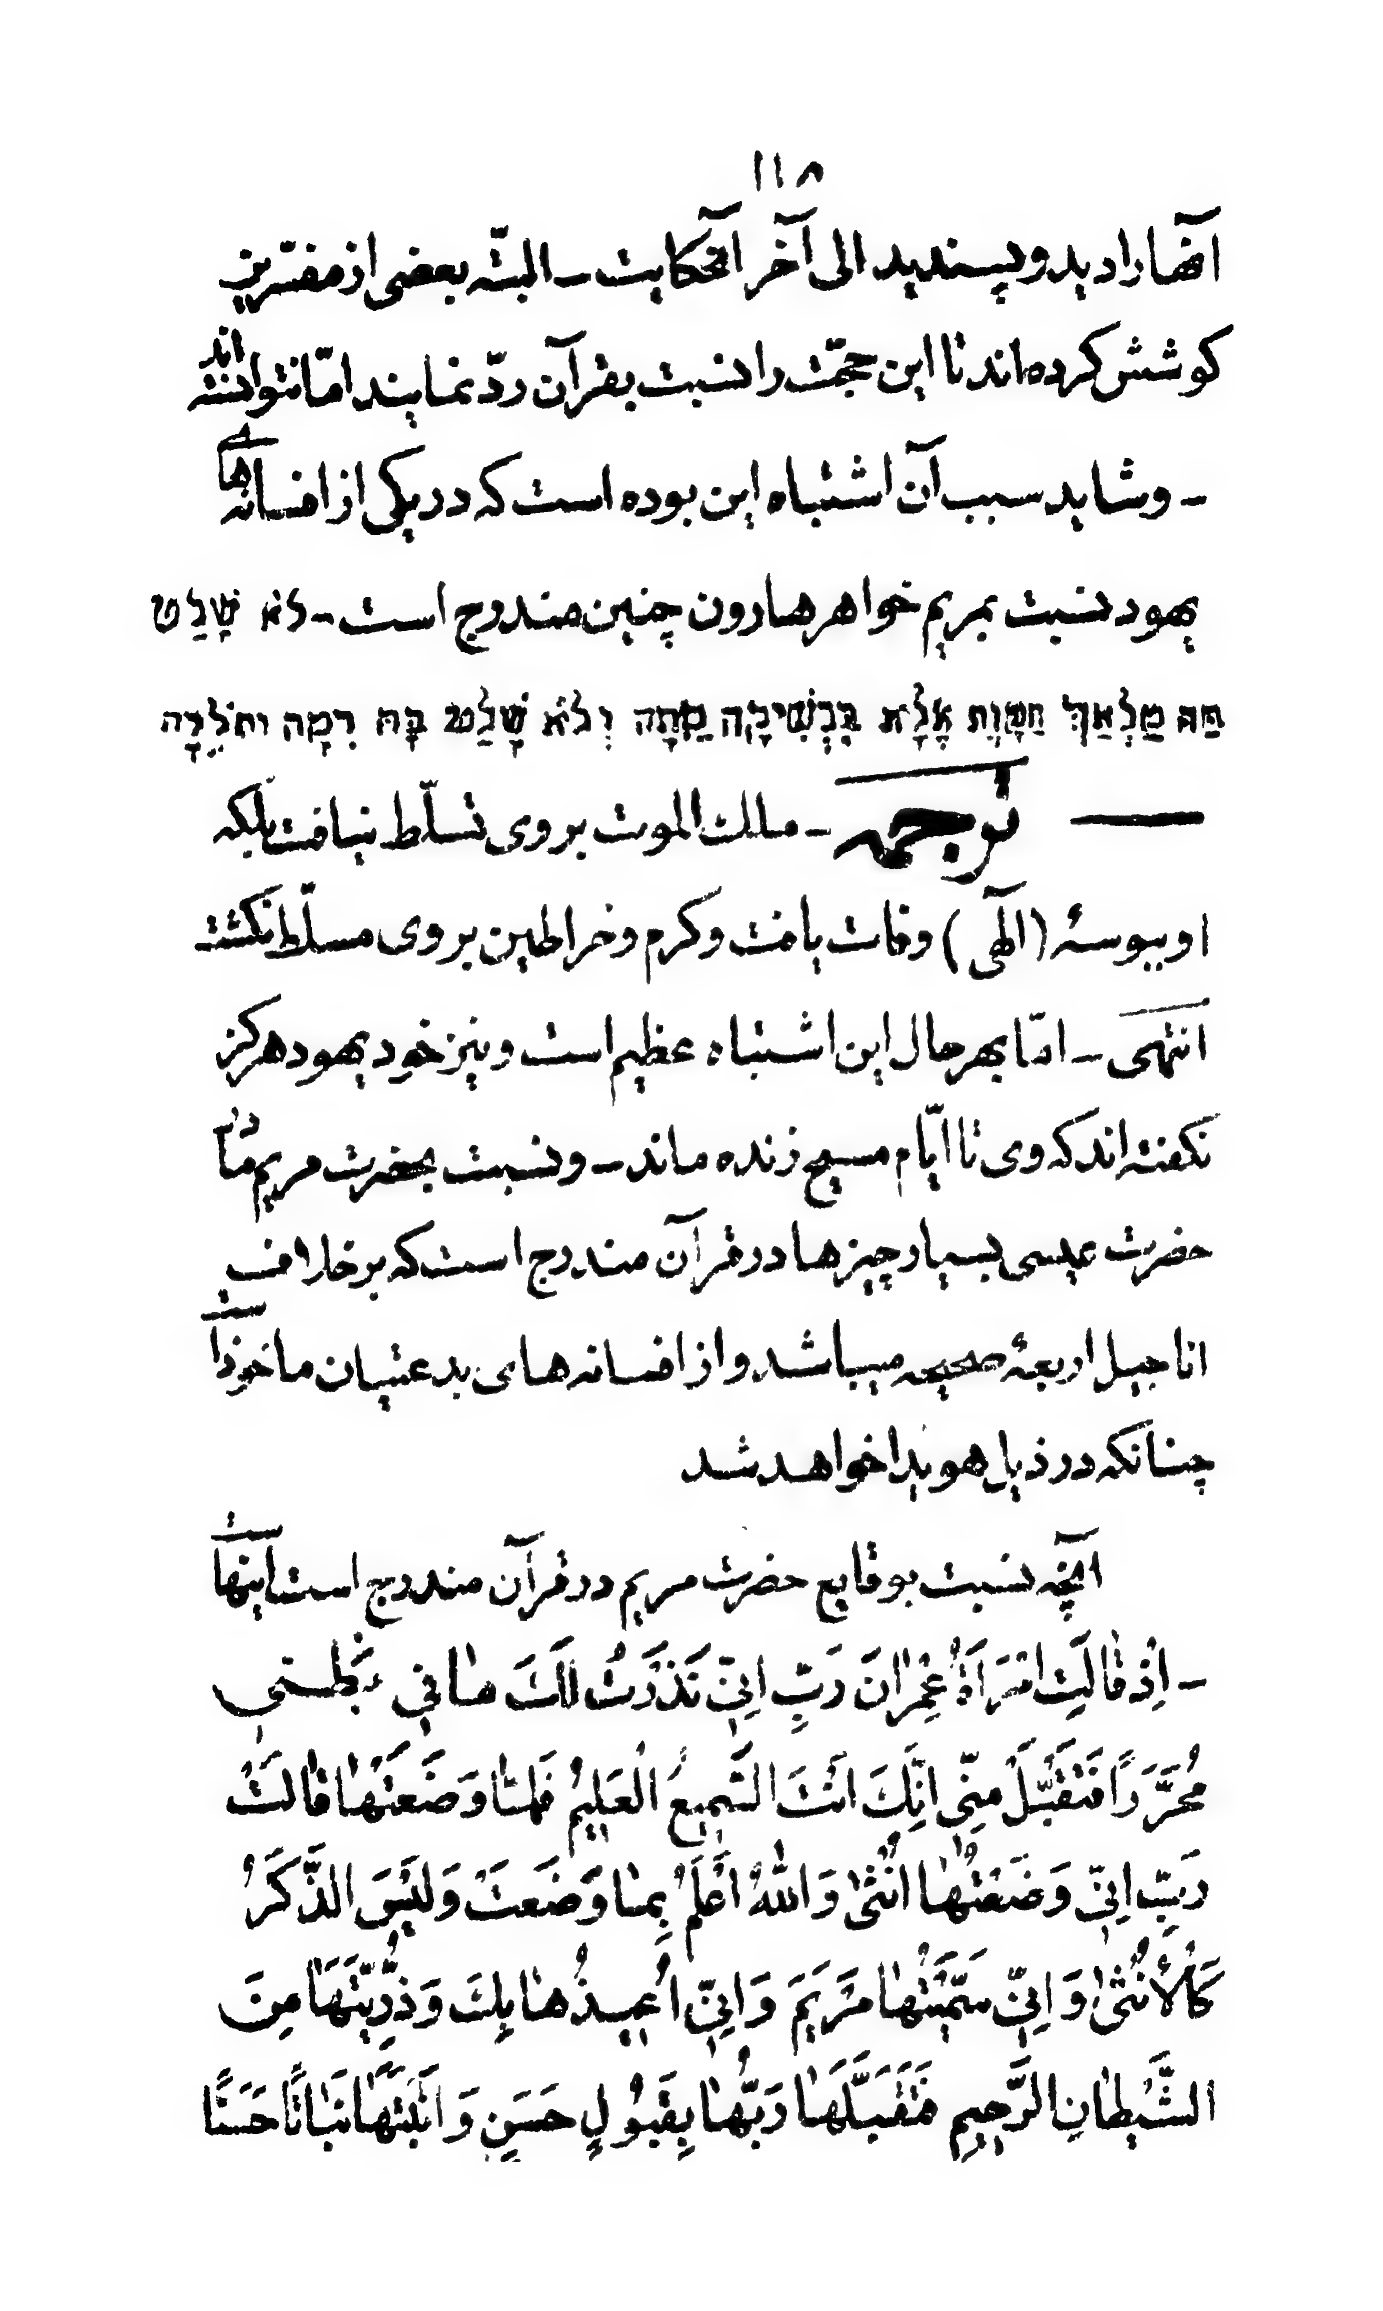 ۱۱۸
آنها را دید و پسندید الی آخر آنحکایت ــ البتّه بعضی از مفسّرین
کوشش کرده‌اند تا این حجّت را نسبت بقرآن ردّ نمایند امّا نتوانسته‌اند
ــ و شاید سبب آن اشتباه این بوده است که در یکی از افسانه‌های
یهود نسبت بمریم خواهر هارون چنین مندرج است ــ לֹא שָׁלַט
בַּהּ מַלְאַךְ הַמָּוֶת אֶלָּא בִּנְשִׁיקָה מֵתָה וְלֹא שָׁלַט בָּהּ רִמָּה ותֹלֵידָה
—— ترجمه ــ ملک الموت بر وی تسلّط نیافت بلکه
او ببوسۀ (الٓهی) وفات یافت و کرم و خراطین بر وی مسلّط نکشت
انتهی ــ امّا بهر حال این اشتباه عظیم است و نیز خود یهود هرکز
نکفته‌اند که وی تا ایّام مسیح زنده ماند ــ و نسبت بحضرت مریم مادر
حضرت عیسی بسیار چیزها در قرآن مندرج است که بر خلاف
اناجیل اربعۀ صحیحه میباشد و از افسانه‌های بدعتیان ماخوذ است
چنانکه در ذیل هویدا خواهد شد
آنچه نسبت بوقایع حضرت مریم در قرآن مندرج است اینهاست
ــ اِذْ قٰالَتِ امْرَاَةُ عِمْرٰانَ رَبِّ اِنّی نَذَرْتُ لَکَ مٰا فی بَطْنی
مُحَرَّرًا فَتَقَبَّلْ مِنّی اِنَّکَ اَنْتَ السَّمیعُ الْعَلیمُ فَلَمّٰا وَضَعَتْهٰا قٰالَتْ
رَبِّ اِنّی وَضَعْتُهٰا اُنْثیٰ وَاللّٰهُ اَعْلَمُ بِمٰا وَضَعَتْ وَلَیْسَ الذَّکَرُ
کَالْاُنْثیٰ وَاِنّی سَمَّیْتُهٰا مَرْیَمَ وَاِنّی اُعیذُهٰا بِکَ وَذُرِّیَّتَهٰا مِنَ
الشَّیْطٰانِ الرَّجیمِ فَتَقَبَّلَهٰا رَبُّهٰا بِقَبُولٍ حَسَنٍ وَاَنْبَتَهٰا نَبٰاتًا حَسَنًا